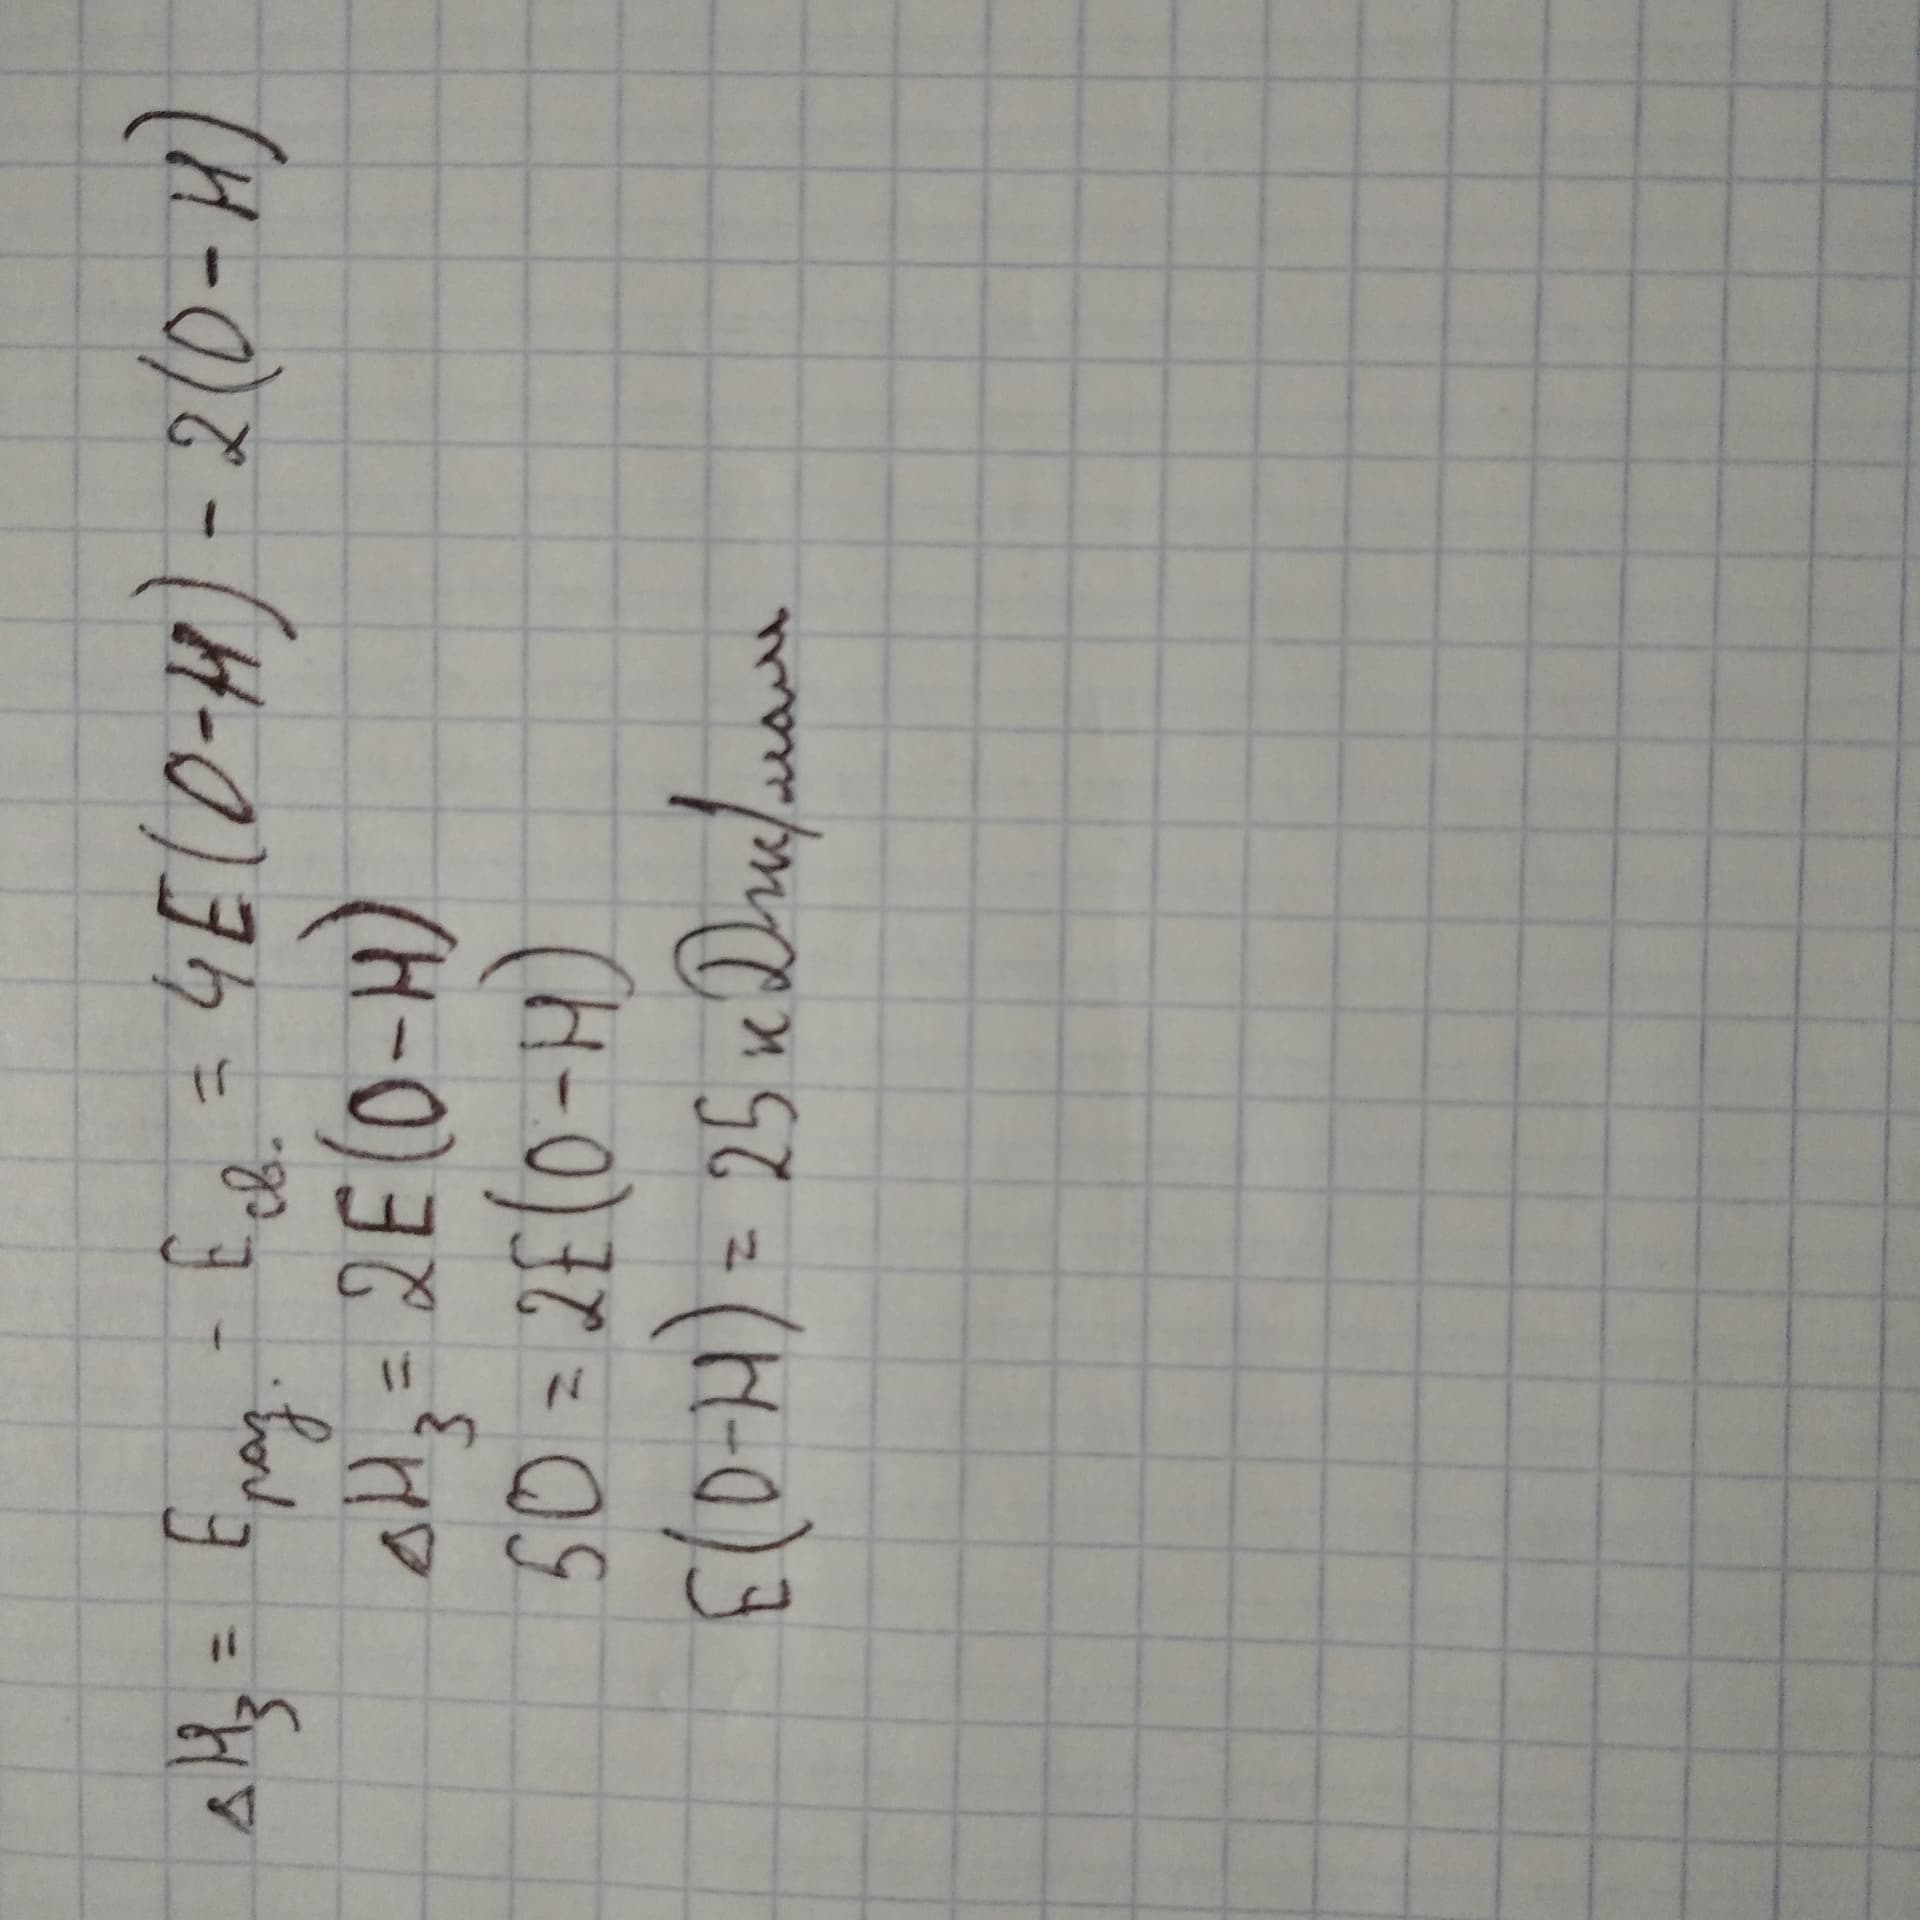 ΔH₃ = Eраз. - Eсв. = 4E(O-H) - 2(O-H)
ΔH₃ = 2E(O-H)
50 = 2E(O-H)
E(O-H) = 25 кДж/моль